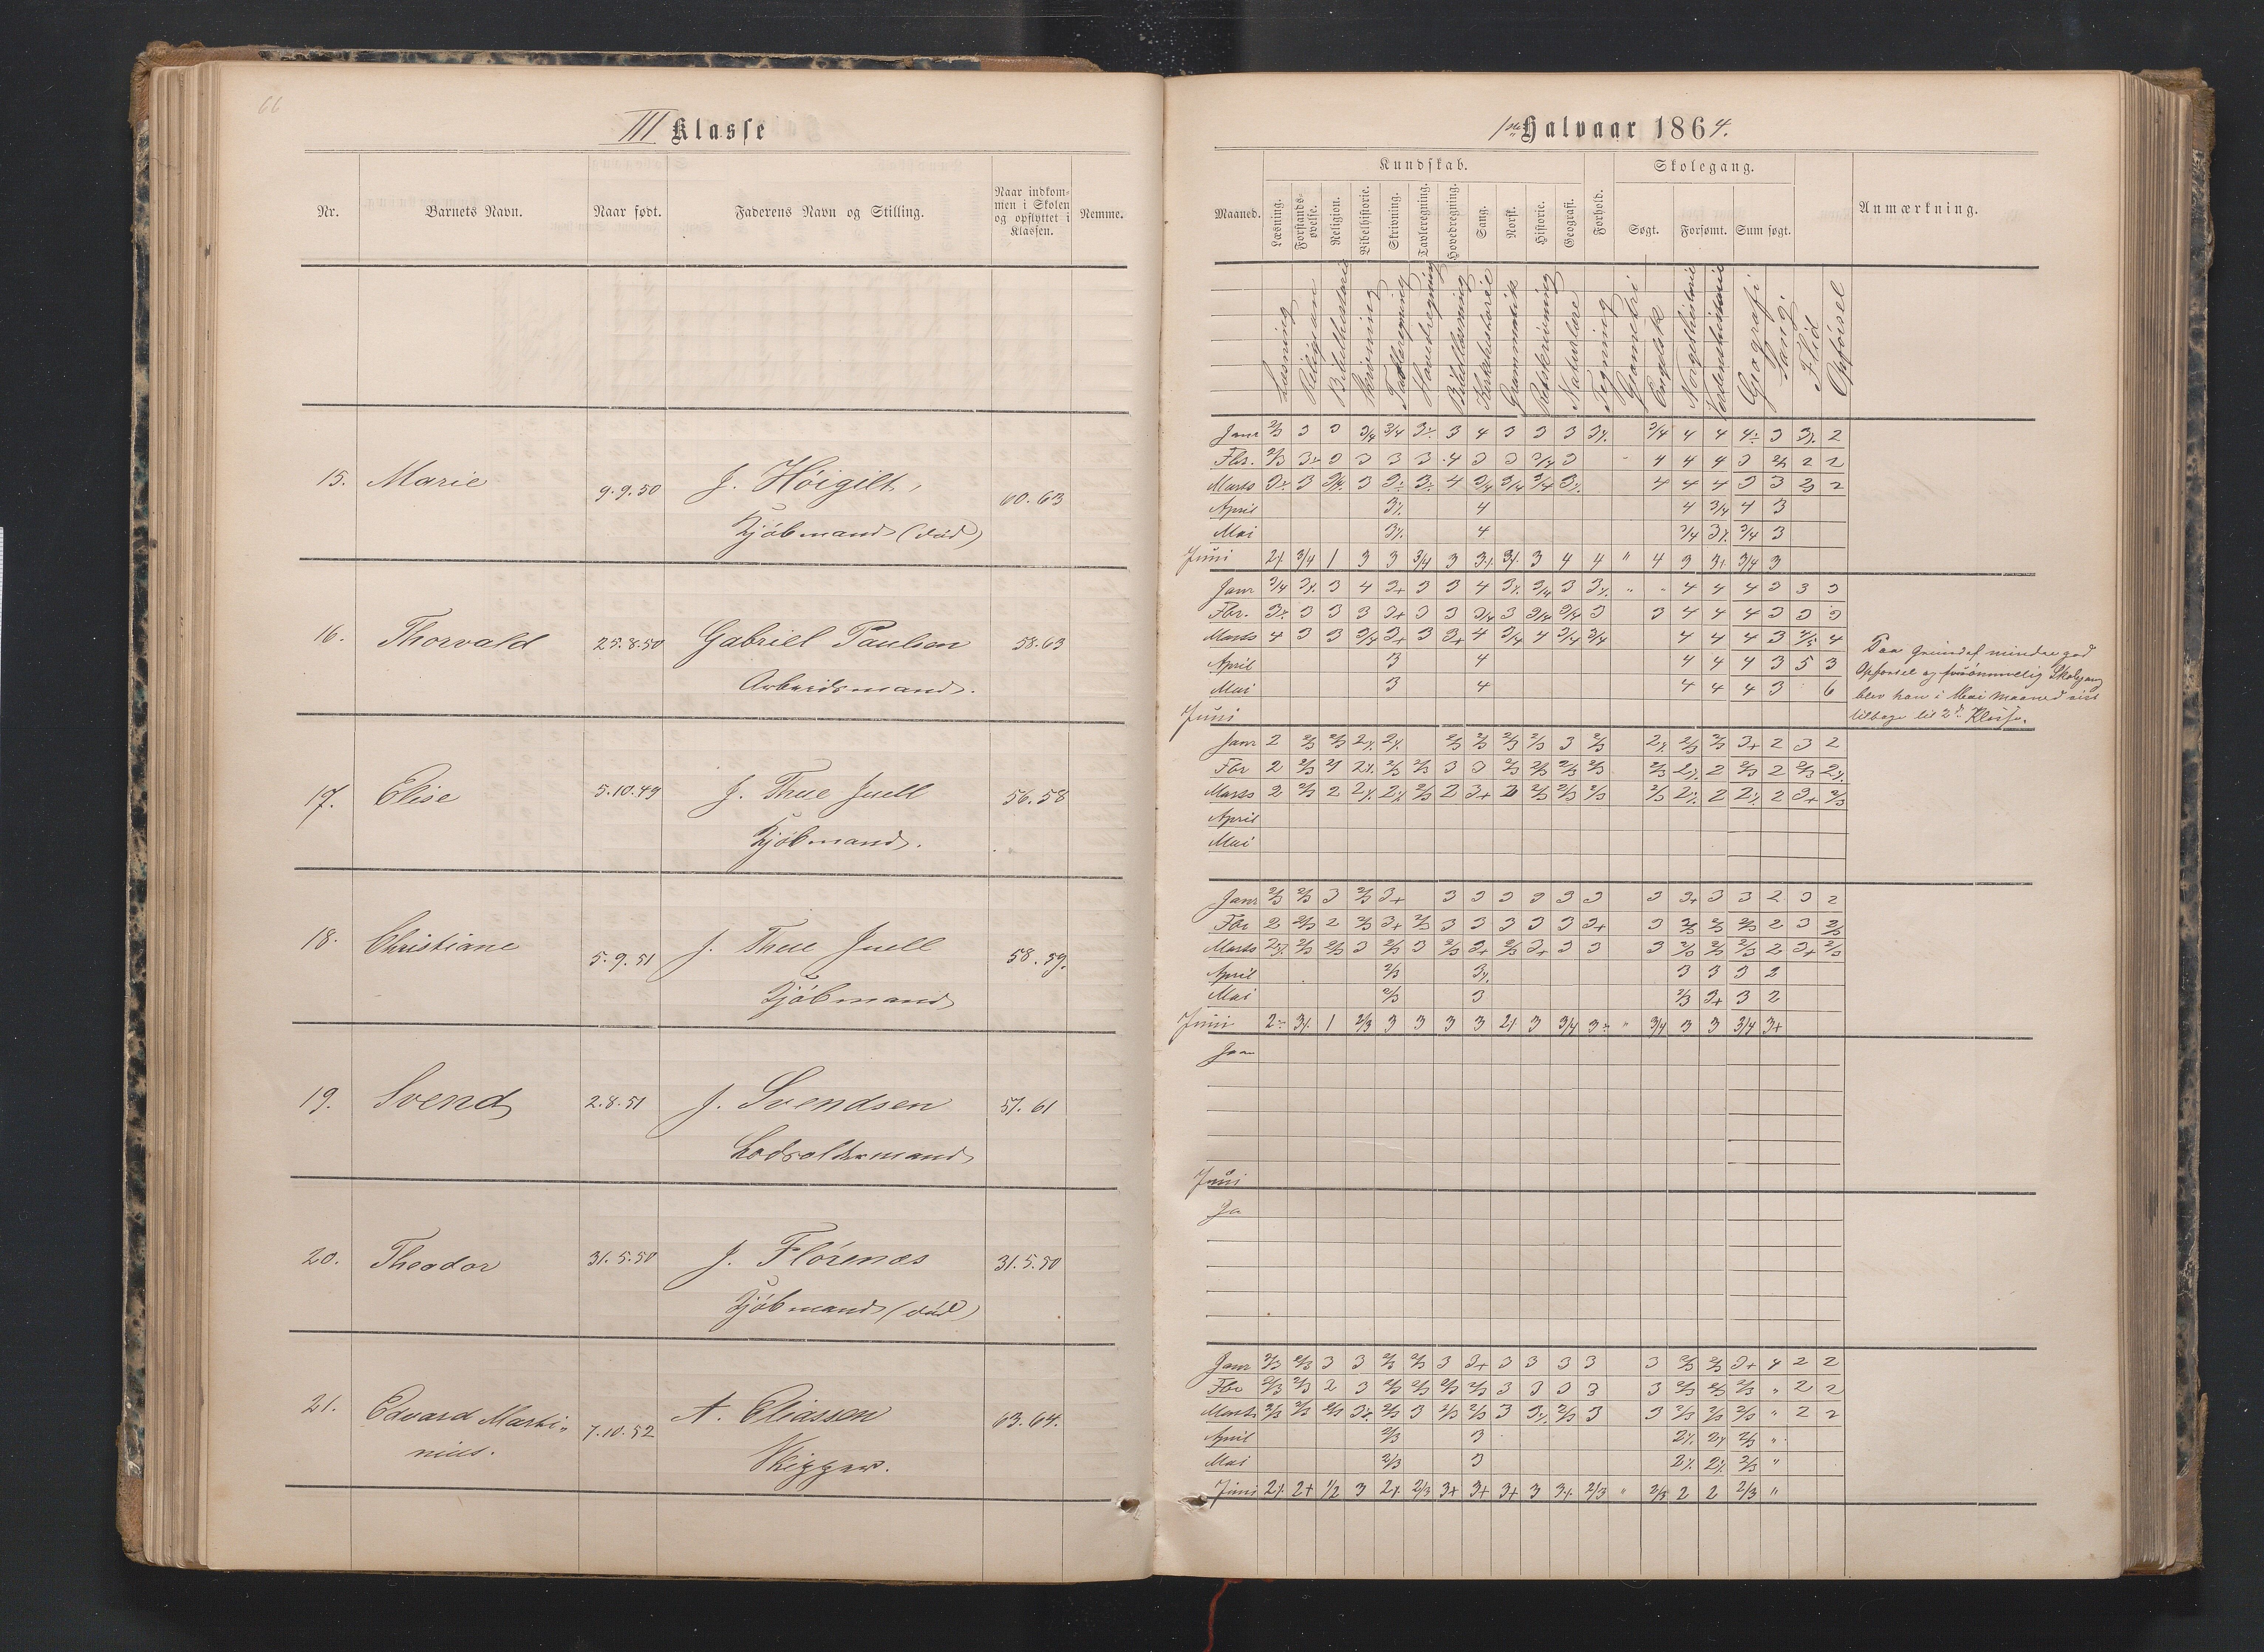 66
III Klasse
Nr.
Barnets Navn.
Naar født.
Faderens Navn og Stilling.
Naar indkom-
men i Skolen
og opflyttet i
Klassen.
Nemme.
15. Marie 9.9.50 J. Höigilt, 60.63
Kjöbmand (död)
16. Thorvald 25.8.50 Gabriel Paulsen 58.63
Arbeidsmand.
17. Elise 5.10.49 J. Thue Juell 56.58
Kjöbmand.
18. Christiane 5.9.51 J. Thue Juell 58.59.
Kjöbmand
19. Svend 2.8.51 J. Svendsen 57.61
Lodsoldermand
20. Theodor 31.5.50 J. Flörenæs 31.5.50
Kjöbmand (död)
21. Edvard Marti„ 7.10.52 A. Eliassen 63.64.
nius. Skipper.
1ste Halvaar 1864.
Kundskab.
Skolegang.
Maaned.
Læsning.
Forstands-
øvelse.
Religion.
Bibelhistorie.
Skrivning.
Tavleregning.
Hovedregning.
Sang.
Norsk.
Historie.
Geografi.
Forhold.
Søgt.
Forsømt.
Sum søgt.
Anmærkning.
Læsning
Religion
Bibelhistorie
Skrivning
Tavleregning
Hovedregning
Bibellæsning
Kirkehistorie
Grammatik
Retskrivning
Naturlære
Tegning
Geometri
Engelsk
Norgeshistorie
Verdenshistorie
Geografi
Sang.
Flid
Opförsel
Janr 2/3 3 3 3/4 3/4 3÷ 3 4 3 3 3 3% 3/4 4 4 4÷ 3 3% 2
Fbr. 2/3 3÷ 3 3 3 3 4 3 3 3/4 3 4 4 4 3 2/3 2 2
Marts 3÷ 3 3/4 3 3÷ 3÷ 4 3/4 3/4 3/4 3% 4 4 4 3 3 2/3 2
April 3% 4 4 3/4 4 3
Mai 3% 4 3/4 3% 3/4 3
Juni 2% 3/4 1 3 3 3/4 3 3% 3% 3 4 4 " 4 3 3+ 3/4 3
Janr 3/4 3% 3 4 3+ 3 3 4 3% 3/4 3 3% " - 4 4 4 3 3 3
Fbr. 3÷ 3 3 3 3+ 3 3 3/4 3 3/4 3/4 3 3 4 4 4 3 3 3
Marts 4 3 3 3/4 3+ 3 3+ 4 3/4 4 3/4 3/4 4 4 4 3 4/5 4
April 3 4 4 4 4 3 5 3
Mai 3 4 4 4 4 3 6
Juni
Paa Grund af mindre god
Opførsel og forsømmelig Skolegang
blev han i Mai Maaned sist
tilbage til 2den Klasse.
Janr 2 2/3 2/3 2% 2% 2/3 2/3 2/3 2/3 3 2/3 2% 2/3 2/3 3+ 2 3 2
Fbr 2 2/3 2% 2% 2/3 2/3 3 3 2/3 2/3 2/3 2/3 2/3 2% 2 2/3 2 2/3 2%
Marts 2 2/3 2 2% 2% 2/3 2 3+ 2 2/3 2/3 2/3 2/3 2% 2 2% 2 3+ 2/3
April
Mai
Janr 2/3 2/3 3 2/3 3+ 3 3 3 3 3 3 3 3+ 3 3 2 3 2
Fbr 2 2/3 2 2/3 3+ 2/3 3 3 3 3 3 3+ 3 2/3 2/3 2/3 2 3 2/3
Marts 2% 2/3 2/3 3 2/3 3 2/3 3+ 2/3 3+ 3 3 3 2/3 2/3 2/3 2 3+ 2/3
April 2/3 3% 3 3 3 2
Mai 2/3 3 2/3 3+ 3 2
Juni 2÷ 3% 1 2/3 3 3 3 3 2% 3 3/4 3÷ " 3/4 3 3 3/4 3+
Jan
Juni
Ja
Janr 2/3 2/3 3 3 2/3 2/3 3 3+ 3 3 3 3 3 2/3 2/3 3+ 4 2 2
Fbr 2/3 2/3 2 3 2/3 2/3 2/3 2/3 3 3 3 3 3 2/3 2/3 2/3 " 2 2
Marts 2/3 2/3 2/3 3% 2/3 3 2/3 2/3 3 3% 2/3 3 3 2/3 2/3 2/3 " 2 2
April 2/3 3 2% 2% 2/3 "
Mai 2/3 3 2% 2% 2/3 "
Juni 2% 2+ 1/2 3 2% 2/3 3+ 3+ 3+ 3 3% 2/3 " 2/3 2 2 2/3 "